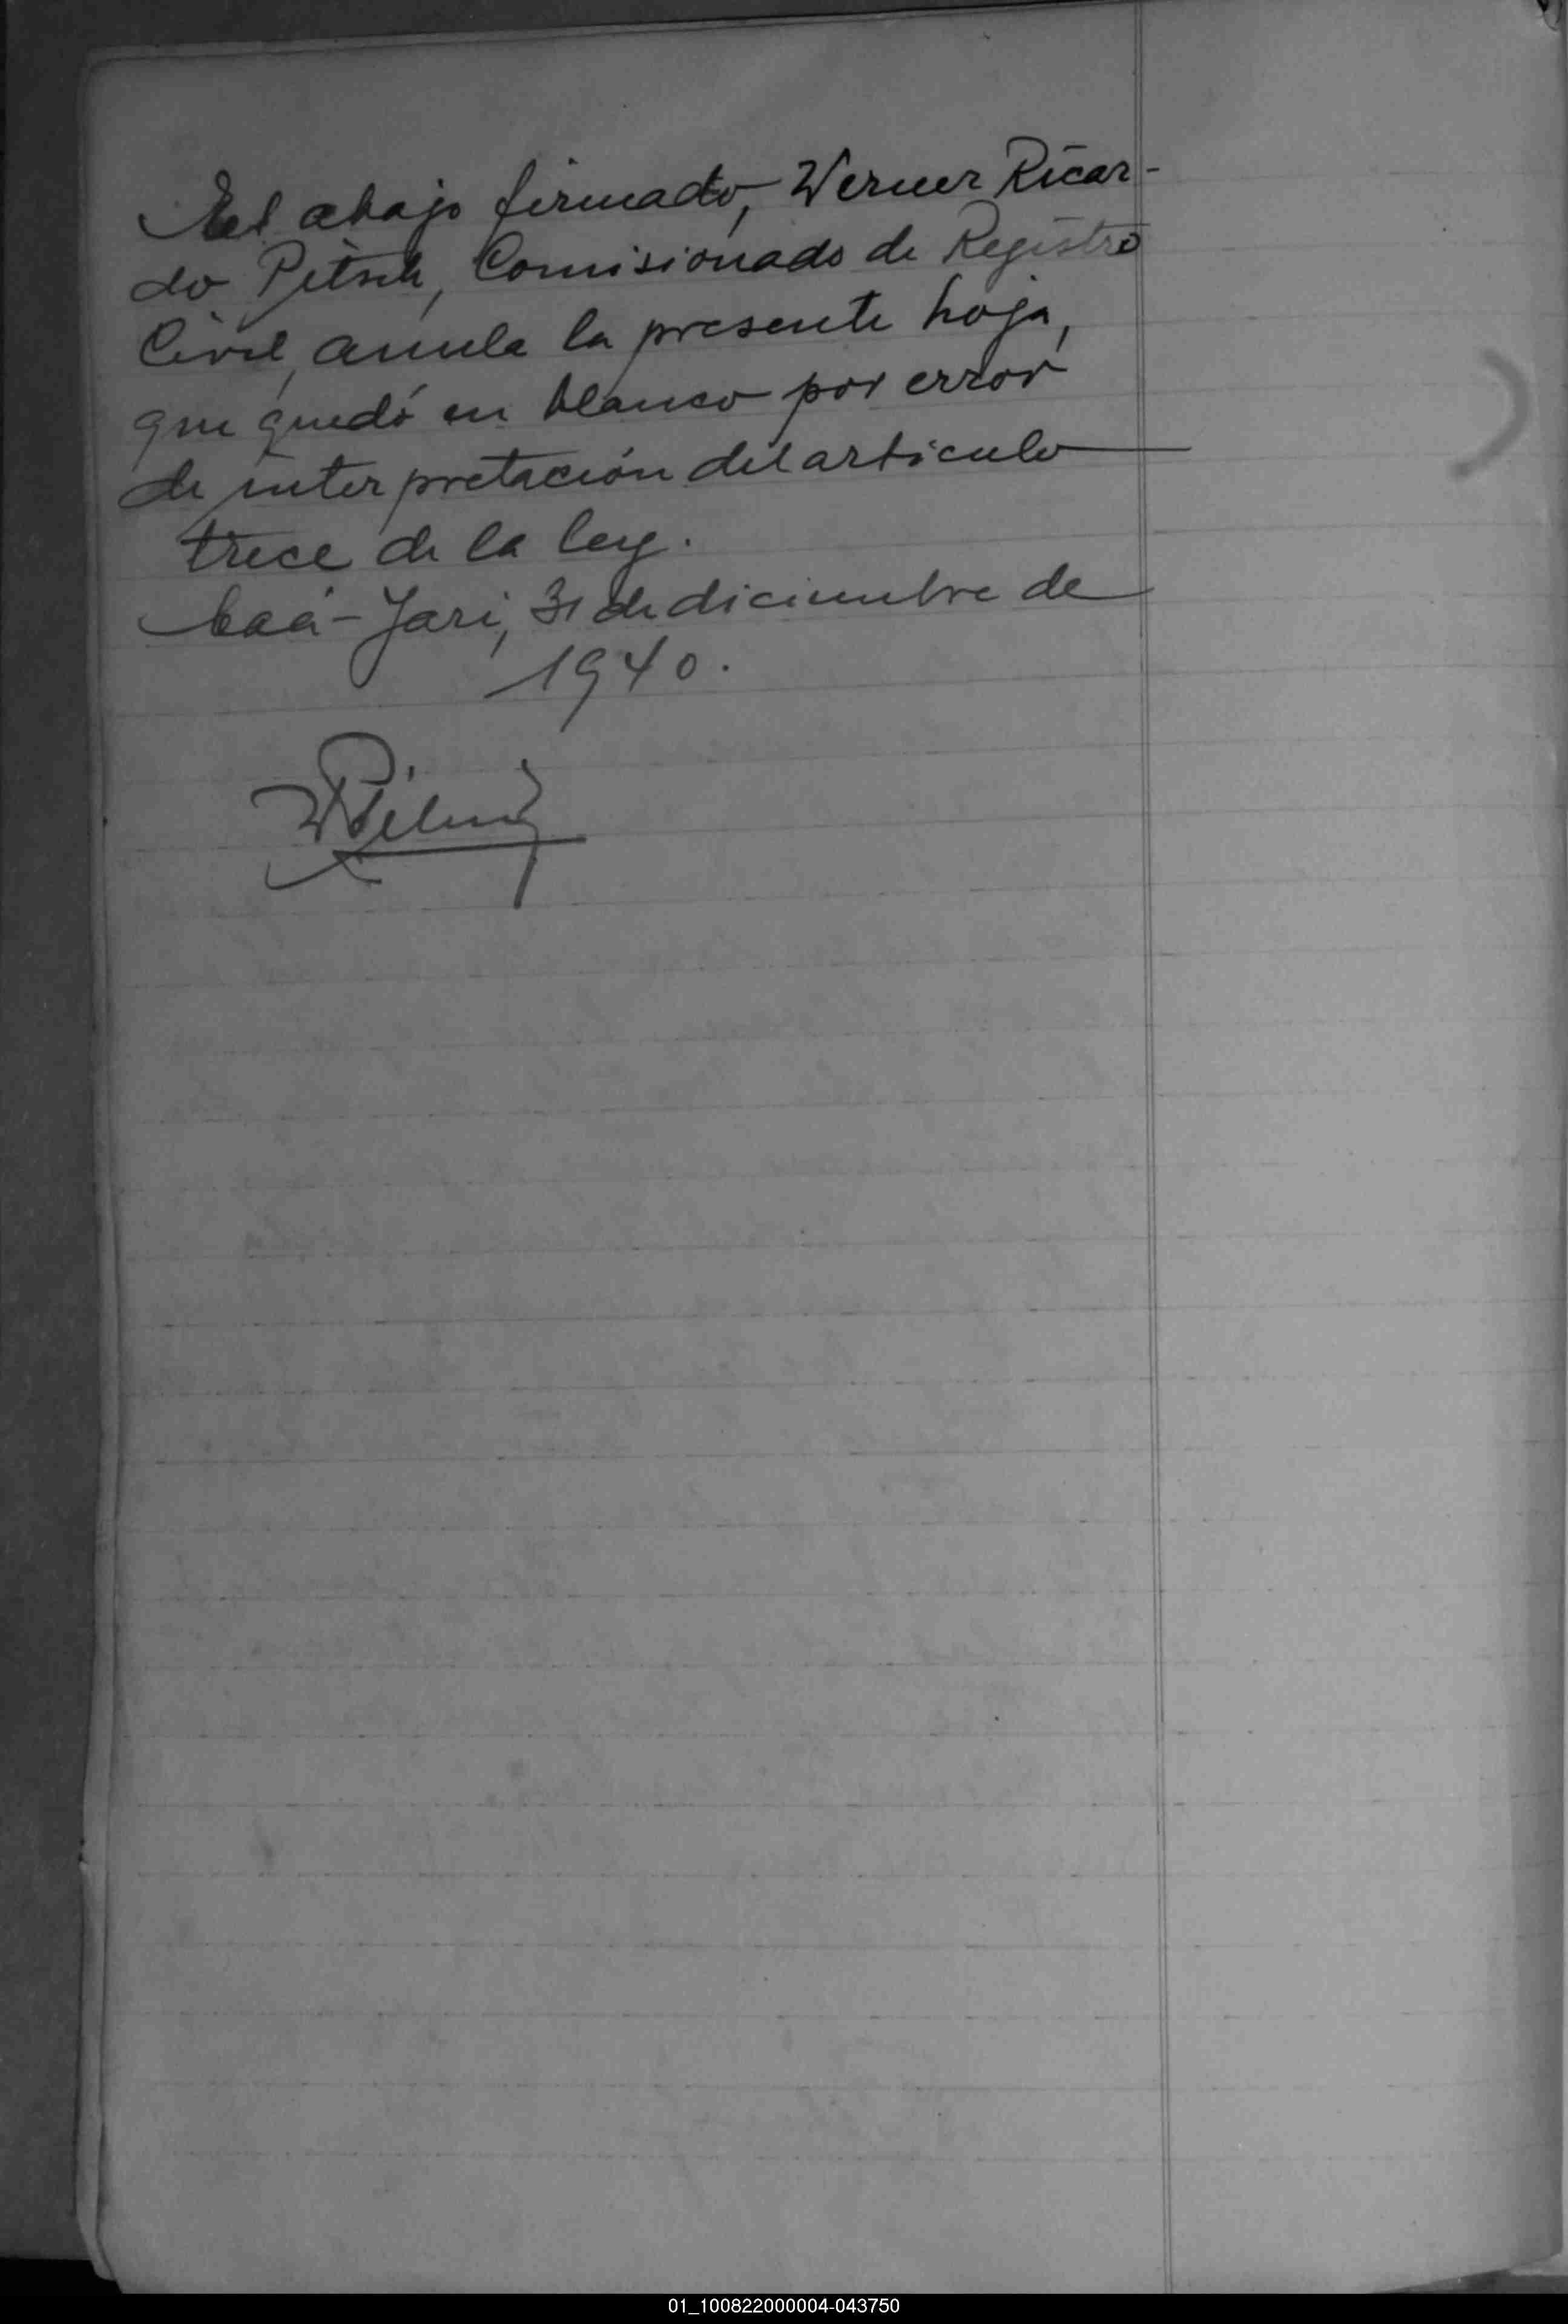 El abajo firmado, Werner Ricar-
do Pitsch, Comisionado de Registro
Civil, anula la presente hoja,
que quedó en blanco por error
de interpretación del artículo
trece de la ley.
Caá-Jari, 31 de diciembre de
1940.
01_100822000004-043750